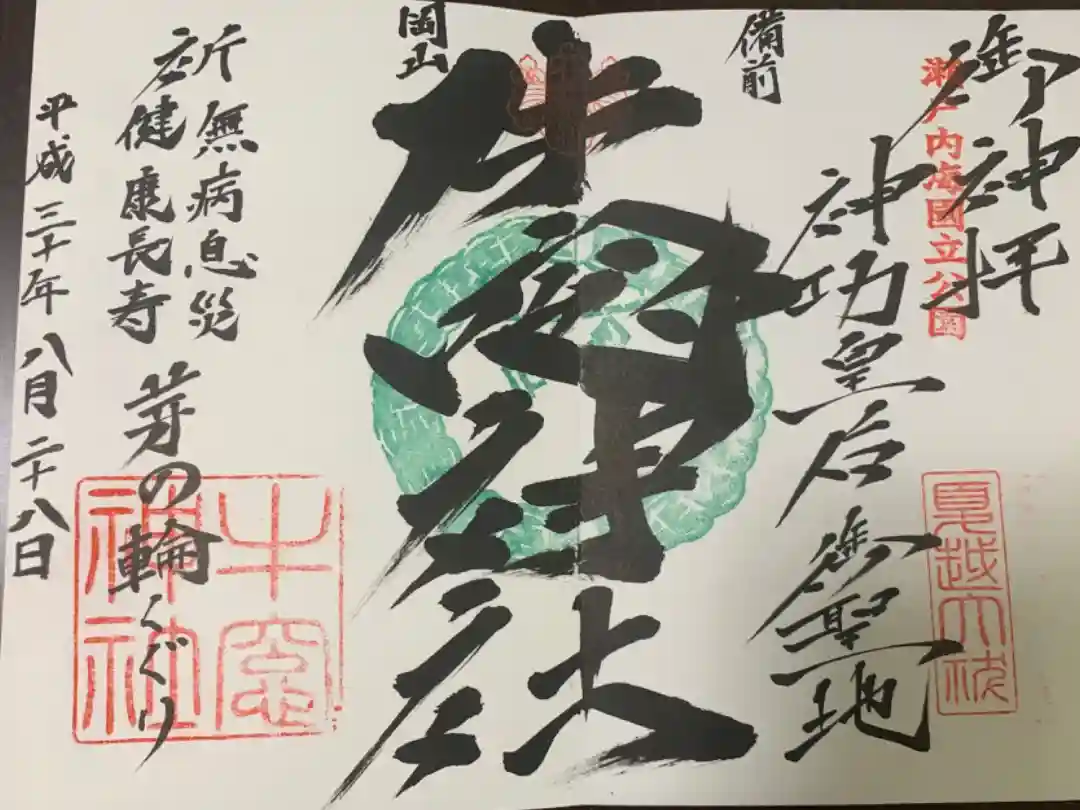 御神拝
瀬戸内海国立公園
神功皇后御聖地
夏越大祓
備前
牛窓神社
岡山
祈 無病息災
健康長寿
芽の輪くぐり
牛窓
神社
平成三十年八月二十八日